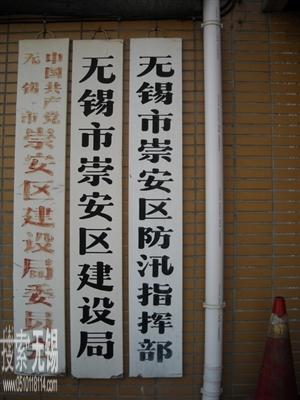 中国共产党
无锡市
崇安区建设局委员
无锡市崇安区建设局
无锡市崇安区防汛指挥部
搜索无锡
www.0510118114.com